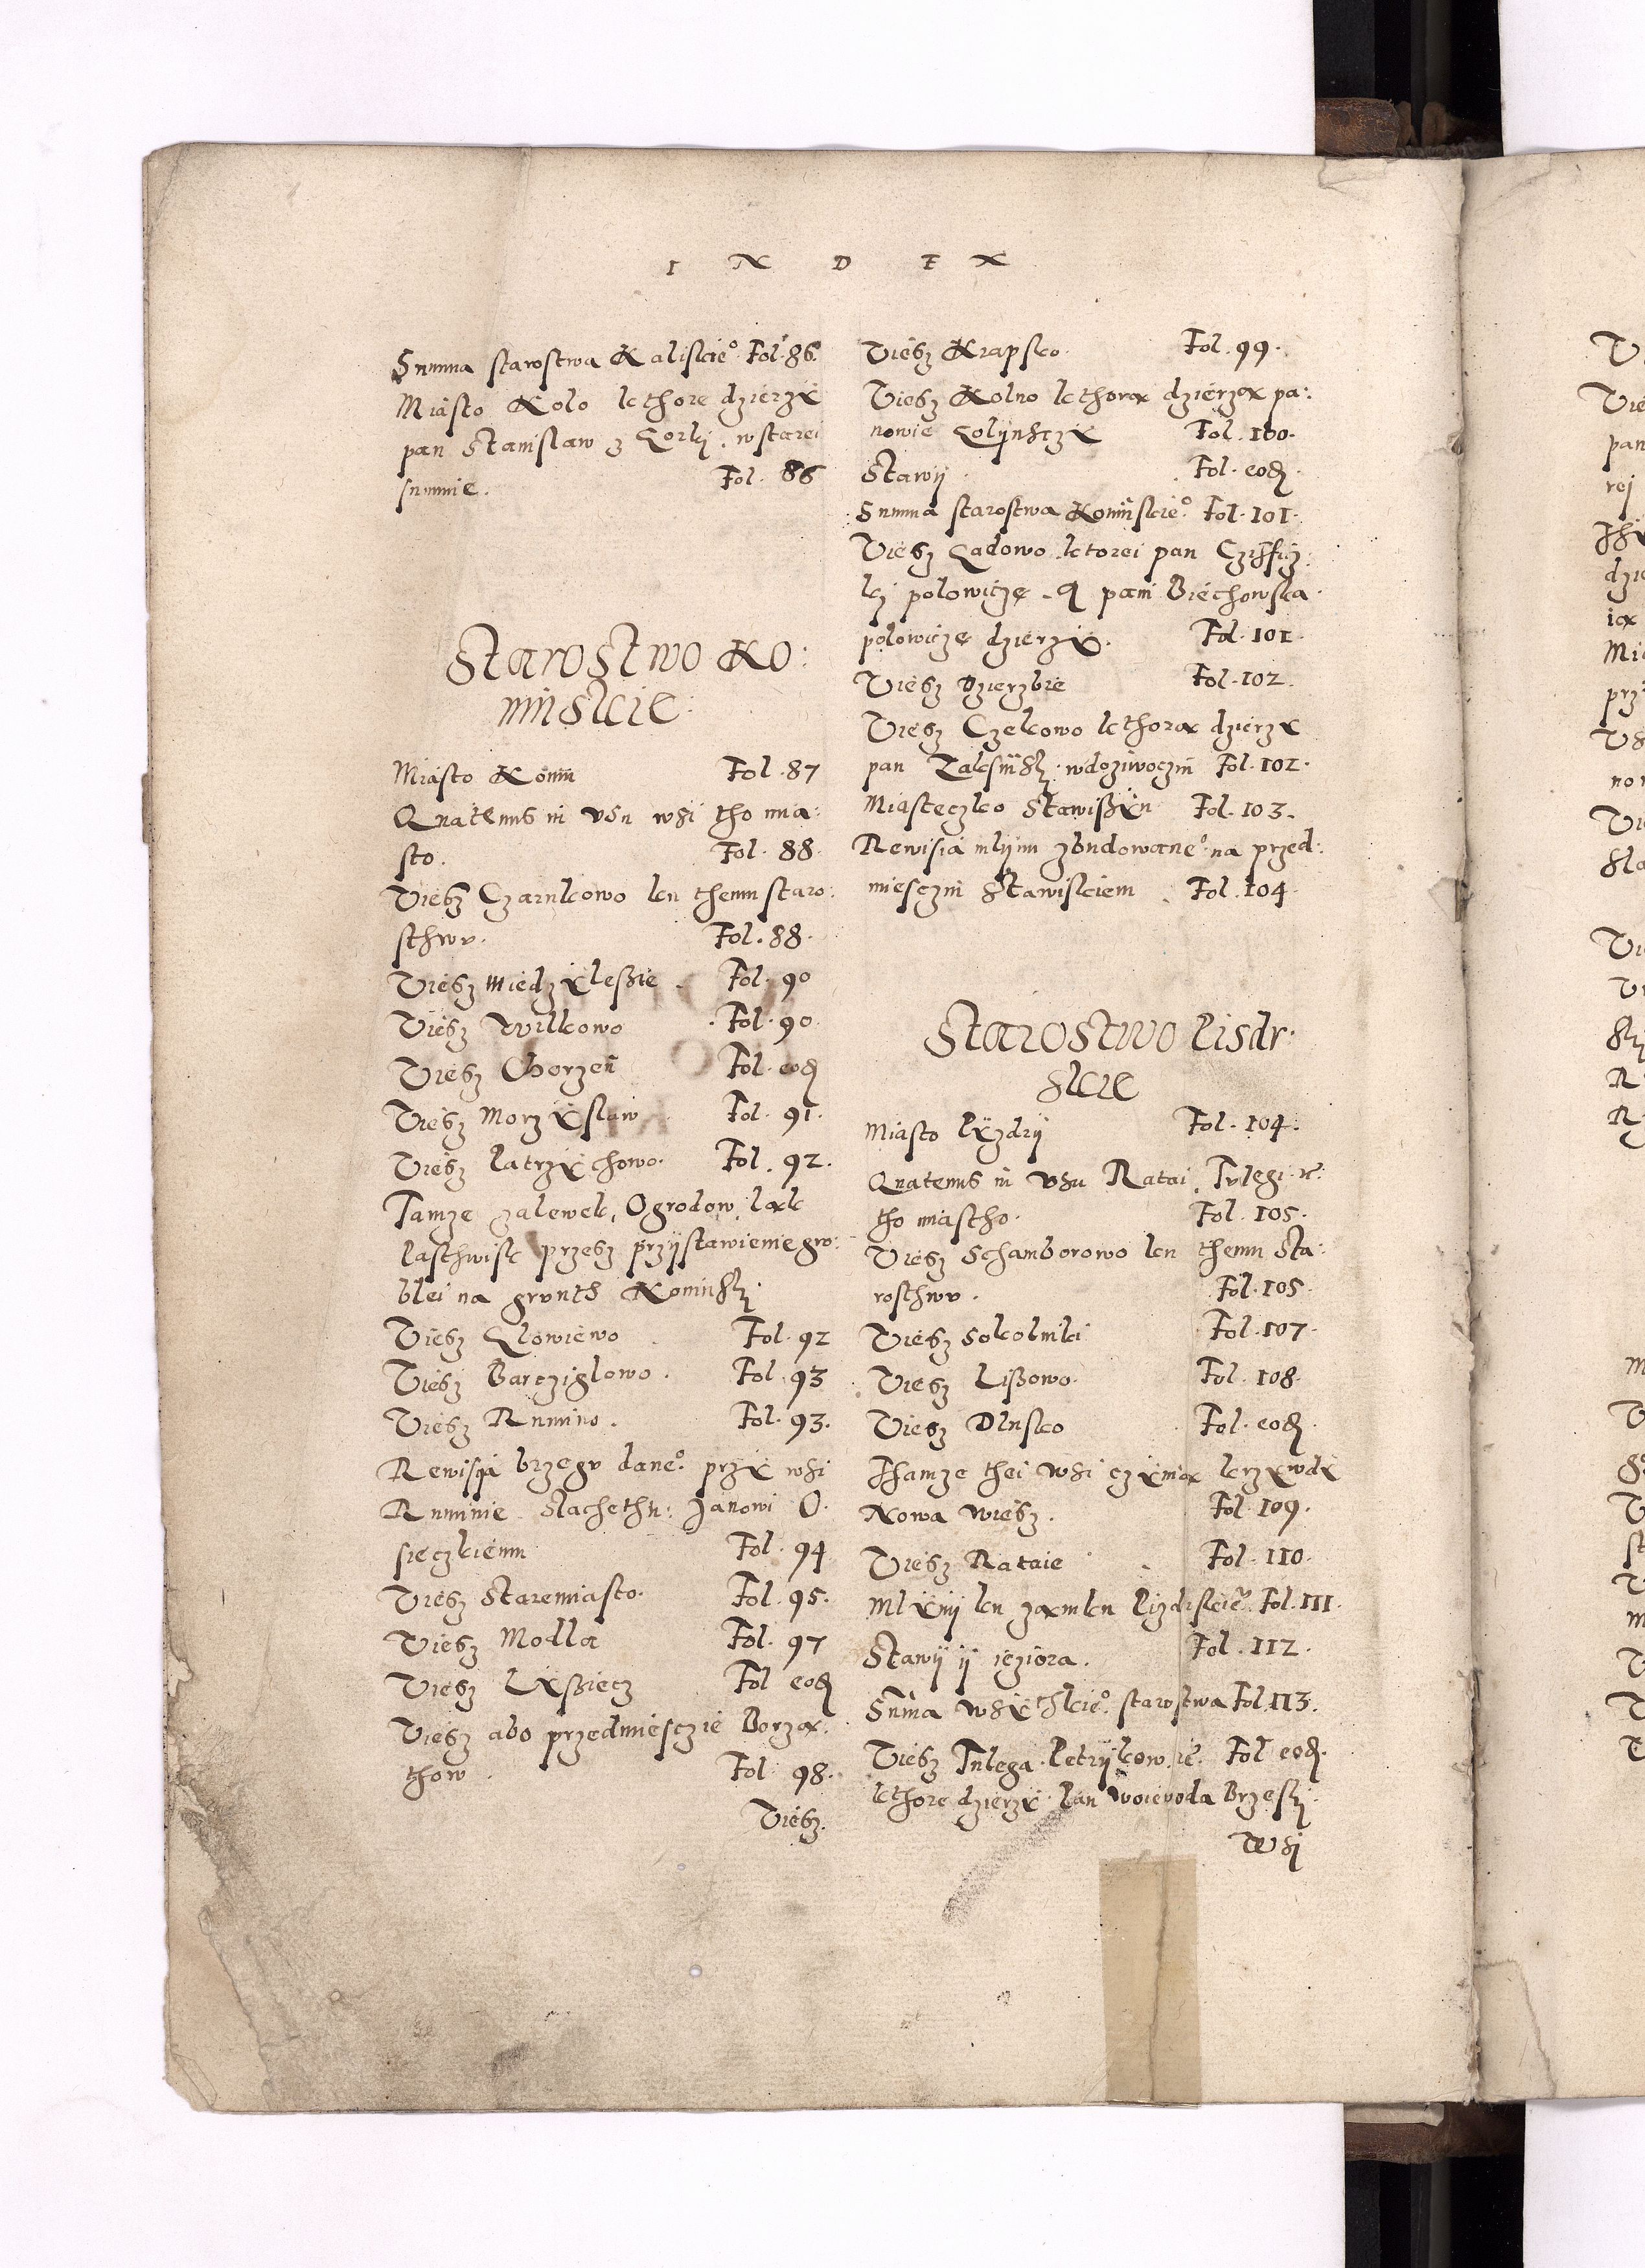 INDEX
Summa starostwa Kaliskie°. Fol. 86.
Miasto Kolo kthore dzierzy
pan Stanislaw z Gorky. w starei
summie. Fol. 86
Starostwo Ko:
ninskie.
Miasto Konin Fol. 87
Quatenus in usu wsi tho mia:
sto. Fol. 88.
Viesz Czarnkowo ku themu staro:
sthwu. Fol. 88.
Viesz Miedzyleßie Fol. 90
Viesz Wilkowo Fol. 90.
Viesz Chorzen Fol. eod
Viesz Morzyslaw Fol. 91.
Viesz Patrzychowo. Fol. 92.
Tamze zalewek, Ogrodow, Lak
Pasthwisk przesz przystawienie gro:
blei na grunth Koninsky.
Viesz Glowiewo Fol. 92
Viesz Barczyglowo. Fol. 93
Viesz Rumino. Fol. 93.
Rewisya brzegu dane°. przy wsi
Ruminie Slachethn: Janowi O.
sieczkiemu Fol. 94
Viesz Staremiasto. Fol. 95.
Viesz Modla Fol. 97
Viesz Lyßiecz Fol eod
Viesz abo przedmiesczie Borza:
thow. Fol. 98.
Viesz.
Viesz Krapsko. Fol. 99.
Viesz Kolno kthora dzierza pa:
nowie Golynsczy Fol. 100.
Stawy. Fol. eod.
Summa starostwa Koninskie°. Fol. 101.
Viesz Gadowo ktorei pan
ky polowicze. A pani Biechowska.
polowicze dzierzy. Fol. 101.
Viesz Dzierzbie Fol. 102.
Viesz Czekowo kthora dzierzy
pan Zalesinsky. w doziwoczin Fol. 102.
Miasteczko Stawißyn Fol. 103.
Rewisia mlynu zbudowane°. na przed:
miesczin Stawiskiem. Fol. 104.
Starostwo Pisdr.
skie
Miasto Pyzdry Fol. 104.
Quatenus in usu Ratai, Tulegi etc:
tho miastho. Fol. 105.
Viesz Schamborowo ku themu sta:
rosthwu. Fol. 105.
Viesz Sokolniki Fol. 107.
Viesz Lißowo. Fol. 108.
Viesz Dlusko Fol. eod.
Thamze thei wsi czynia krzywdy
Nowa wiesz. Fol. 109.
Viesz Rataie Fol. 110.
Mlyny ku zamku Pizdrskie° Fol. 111.
Stawy y ieziora. Fol. 112.
Suma wßythkie°. starostwa Fol. 113.
Viesz Tulega. Petrykow. etc. Fol eod.
kthore dzierzy Pan Woiewoda Brzesky.
Wsy